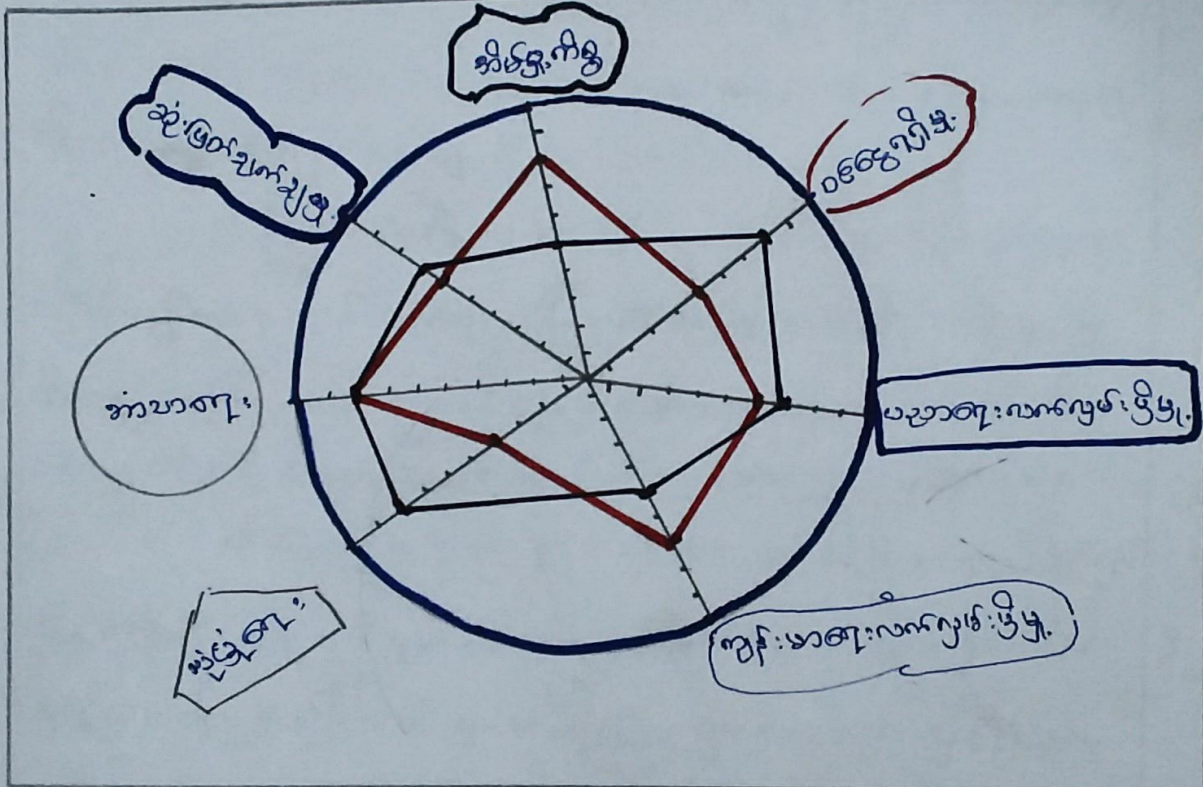 အိမ်မှုကိစ္စ
ဝင်ငွေရှိမှု
ပညာရေးလက်လှမ်းမှီမှု
ကျန်းမာရေးလက်လှမ်းမှီမှု
ဘာသာရေး
ဆုံးဖြတ်ချက်ချမှု